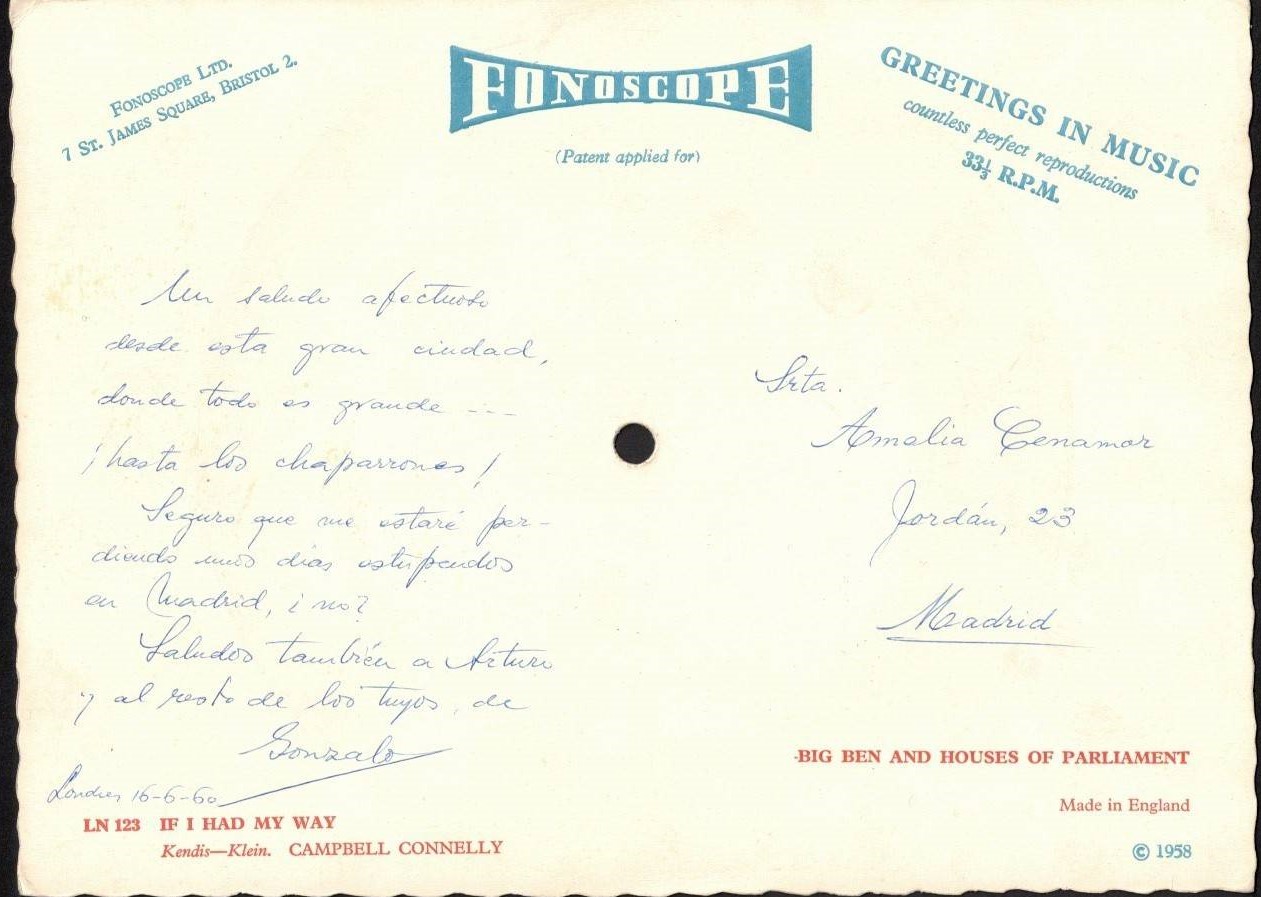 FONOSCOPE LTD.
7 ST. JAMES SQUARE, BRISTOL 2.
FONOSCOPE
(Patent applied for)
GREETINGS IN MUSIC
countless perfect reproductions
33⅓ R.P.M.
Un saludo afectuoso
desde esta gran ciudad,
donde todo es grande ---
¡hasta los chaparrones!
Seguro que me estaré per-
diendo unos días estupendos
en Madrid, ¿no?
Saludos también a Arturo
y al resto de los tuyos, de
Gonzalo
Londres 16-6-60
Srta.
Amalia Cenamor
Jordán, 23
Madrid
LN 123 IF I HAD MY WAY
Kendis—Klein. CAMPBELL CONNELLY
BIG BEN AND HOUSES OF PARLIAMENT
Made in England
© 1958